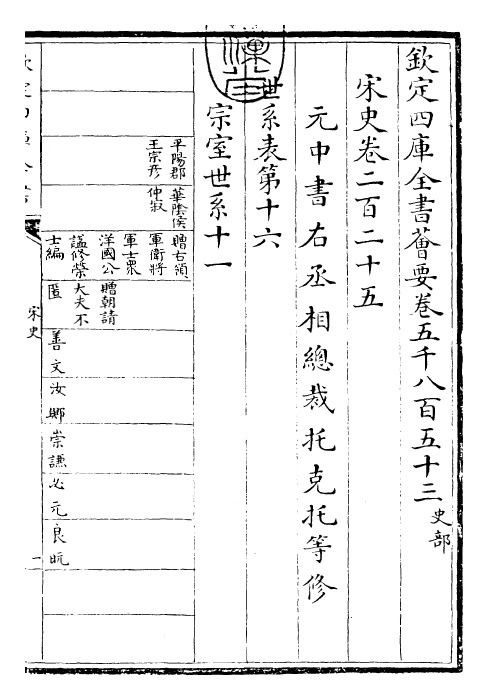 欽定四庫全書薈要卷五千八百五十三 史部
宋史卷二百二十五
元中書右丞相總裁托克托等修
世系表第十六
宗室世系十一
平陽郡 華陰侯 贈右領
王宗彥 仲淑 軍衛將
軍士衆
洋國公 贈朝請
謚修榮 大夫不
士編 匿 善文 汝鄉 崇謙 必元 良旼
宋史
一